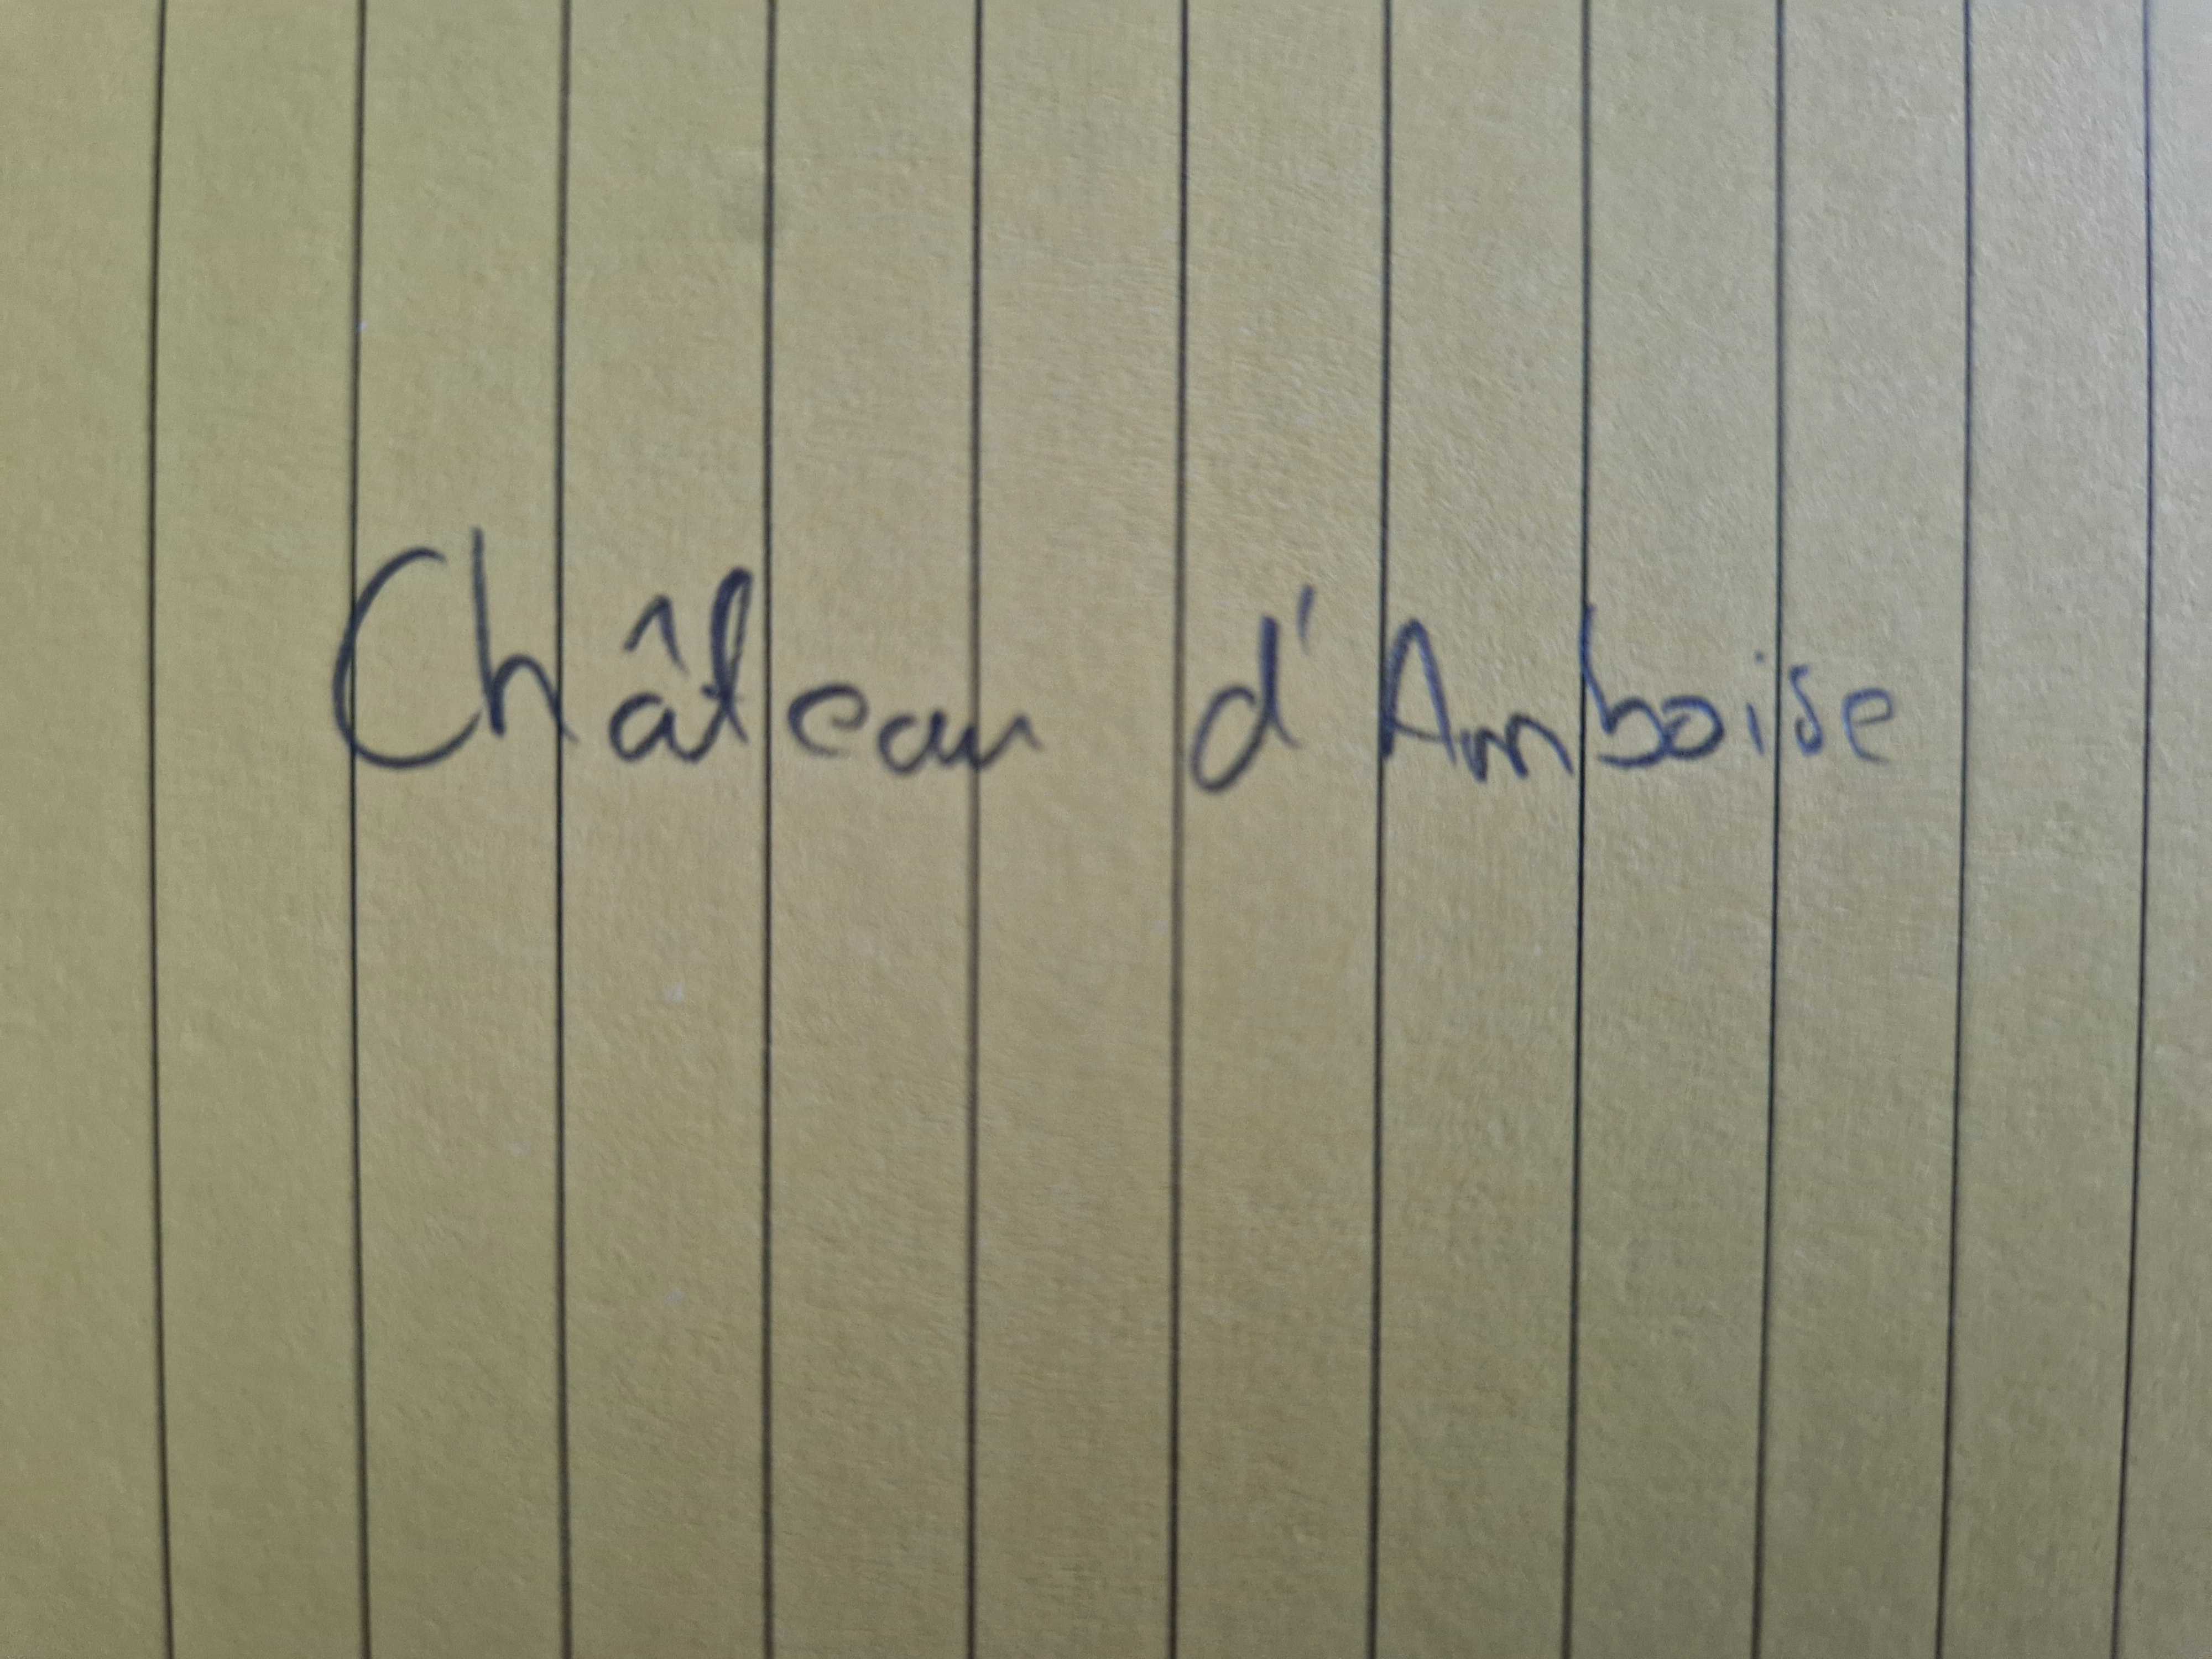 Château d'Amboise